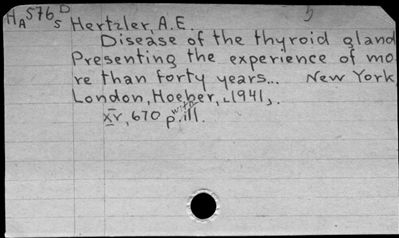 HA576 D 5
S Hertzler, A.E.
Disease of the thyroid gland
Presenting the experience of mo
re than forty years... New York
London, Hoeber, [1941].
XV, 670 p. with ill.